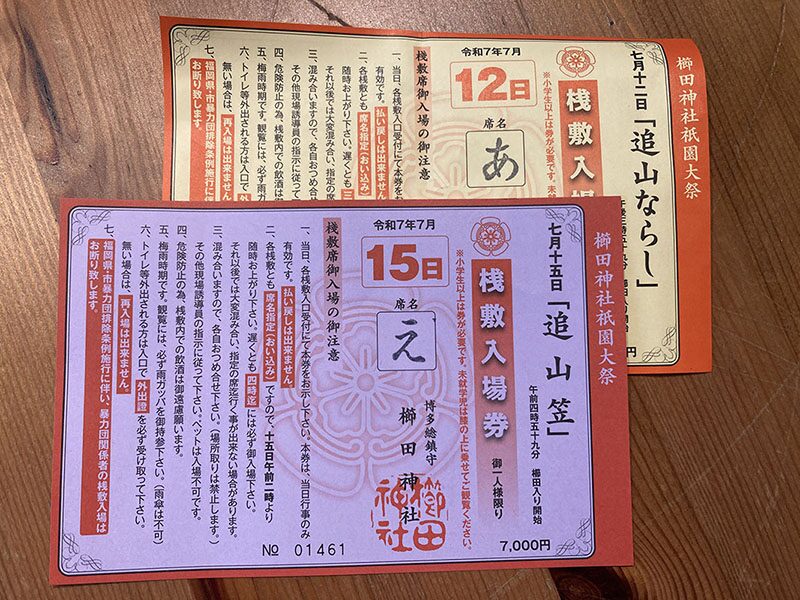 櫛田神社祇園大祭
七月十二日「追山ならし」
桟敷入場
※小学生以上は券が必要です。未
令和7年7月
12日
席名
あ
桟敷席御入場の御注意
一、当日、各桟敷入口受付にて本券をお
有効です。払い戻しは出来ません
二、各桟敷とも席名指定(おい込み)
随時お上がり下さい。遅くとも三
それ以後では大変混み合い、指定の席
三、混み合いますので、各自おつめ合
その他現場誘導員の指示に従って
四、危険防止の為、桟敷内での飲酒は
五、梅雨時期です。観覧には、必ず雨ガ
六、トイレ等外出される方は入口で外
無い場合は、再入場は出来ません
七、福岡県・市暴力団排除条例施行に
お断り致します。
円
櫛田神社祇園大祭
七月十五日「追山笠」
午前四時五十九分 櫛田入り開始
桟敷入場券
御一人様限り
7,000円
※小学生以上は券が必要です。未就学児は膝の上に乗せてご観覧ください。
令和7年7月
15日
席名
え
博多総鎮守
櫛田神社
櫛田
神社
桟敷席御入場の御注意
一、当日、各桟敷入口受付にて本券をお示し下さい。本券は、当日行事のみ
有効です。払い戻しは出来ません
二、各桟敷とも席名指定(おい込み)ですので、十五日午前二時より
随時お上がり下さい。遅くとも四時迄には必ず御入場下さい。
それ以後では大変混み合い、指定の席迄行く事が出来ない場合があります。
三、混み合いますので、各自おつめ合せ下さい。(場所取りは禁止します。)
その他現場誘導員の指示に従って下さい。ペットは入場不可です。
四、危険防止の為、桟敷内での飲酒は御遠慮願います。
五、梅雨時期です。観覧には、必ず雨ガッパを御持参下さい。(雨傘は不可)
六、トイレ等外出される方は入口で外出證を必ず受け取って下さい。
無い場合は、再入場は出来ません。
七、福岡県・市暴力団排除条例施行に伴い、暴力団関係者の桟敷入場は
お断り致します。
№ 01461